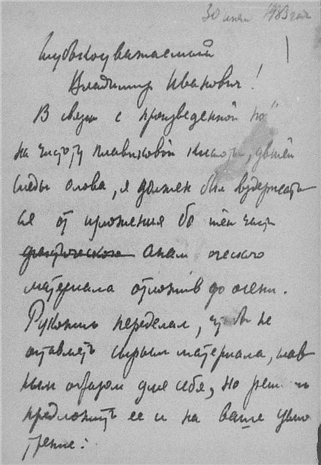 30 июня
Глубокоуважаемый
Владимир Иванович!
В связи с произведенной
на чистоту плавиковой кислоты,
следы олова, я должен был воздержать
ся от изложения бо́льшей части
фактического
материала отложив до осени.
Рукопись переделал, чтобы не
оставлять сырым материала, глав
ным образом для себя, но решил
предложить ее и на ваше усмо
трение: